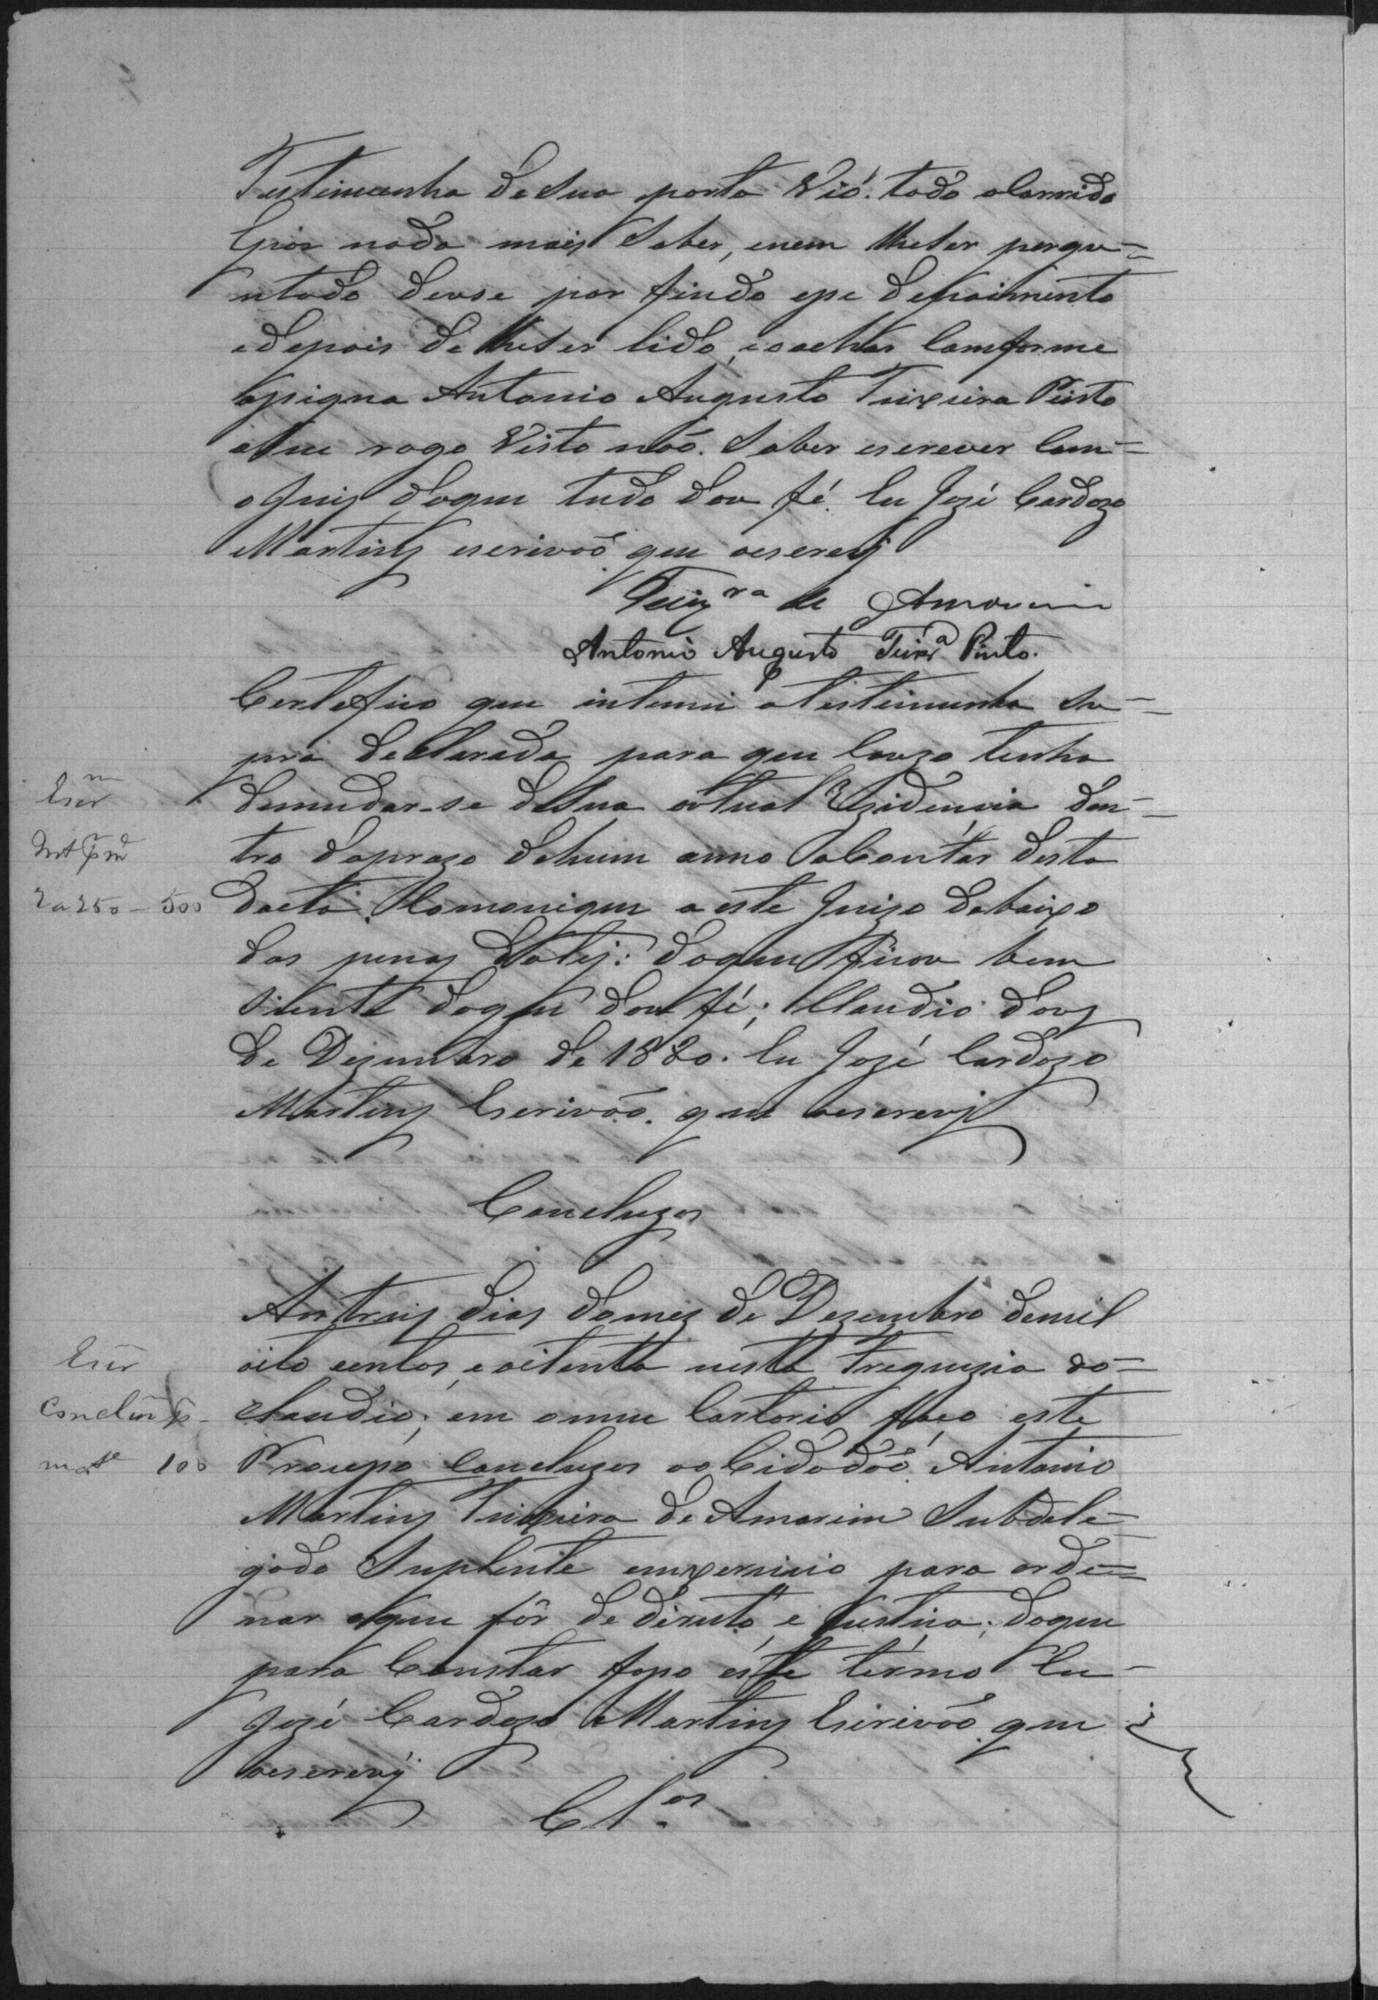 Testimunha de Sua porta Vio. todo o Corrido
Epor nada mais Saber, enem lheser pergu=
ntado deuse por findo ese depoimento
edepois de lheser lido, eoachar Comforme
asigna Antonio Augusto Teixeira Pinto
a Seu rogo Visto não Saber escrever Com-
o Juis doque tudo dou fé. Eu Jozé Cardozo
Martins escrivão que oescrevj
Teix.ra de Amorim
Antonio Augusto Teixr.a Pinto.
Certefico que intimei a Testimunha Su=
pra declarada para que Cauzo tenha
demudar-se deSua actual Rezidencia den=
tro doprazo dehum anno aContar desta
dacta Comonique a este Juizo debaixo
das penas daLej: doque ficou bem
Siente doque dou fé; Claudio dous
de Dezembro de 1880. Eu Jozé Cardozo
Martins Escrivão que oescrevj
Escr.m
2 a 250 – 500
Concluzos
Aos treis dias domez de Dezembro demil
oito centos, e oitenta nesta Freguezia do-
Claudio; em omeu Cartorio faço este
Proceso Concluzos ao Cidadão Antonio
Martins Teixeira de Amorim Subdele=
gado Suplente emxercicio para orde=
nar oque fôr de direito, e Justiça; doque
para Constar faso este termo Eu-
Jozé Cardozo Martins Escrivão que
oescrevj
Escr.
Conclus
100
Cl.os